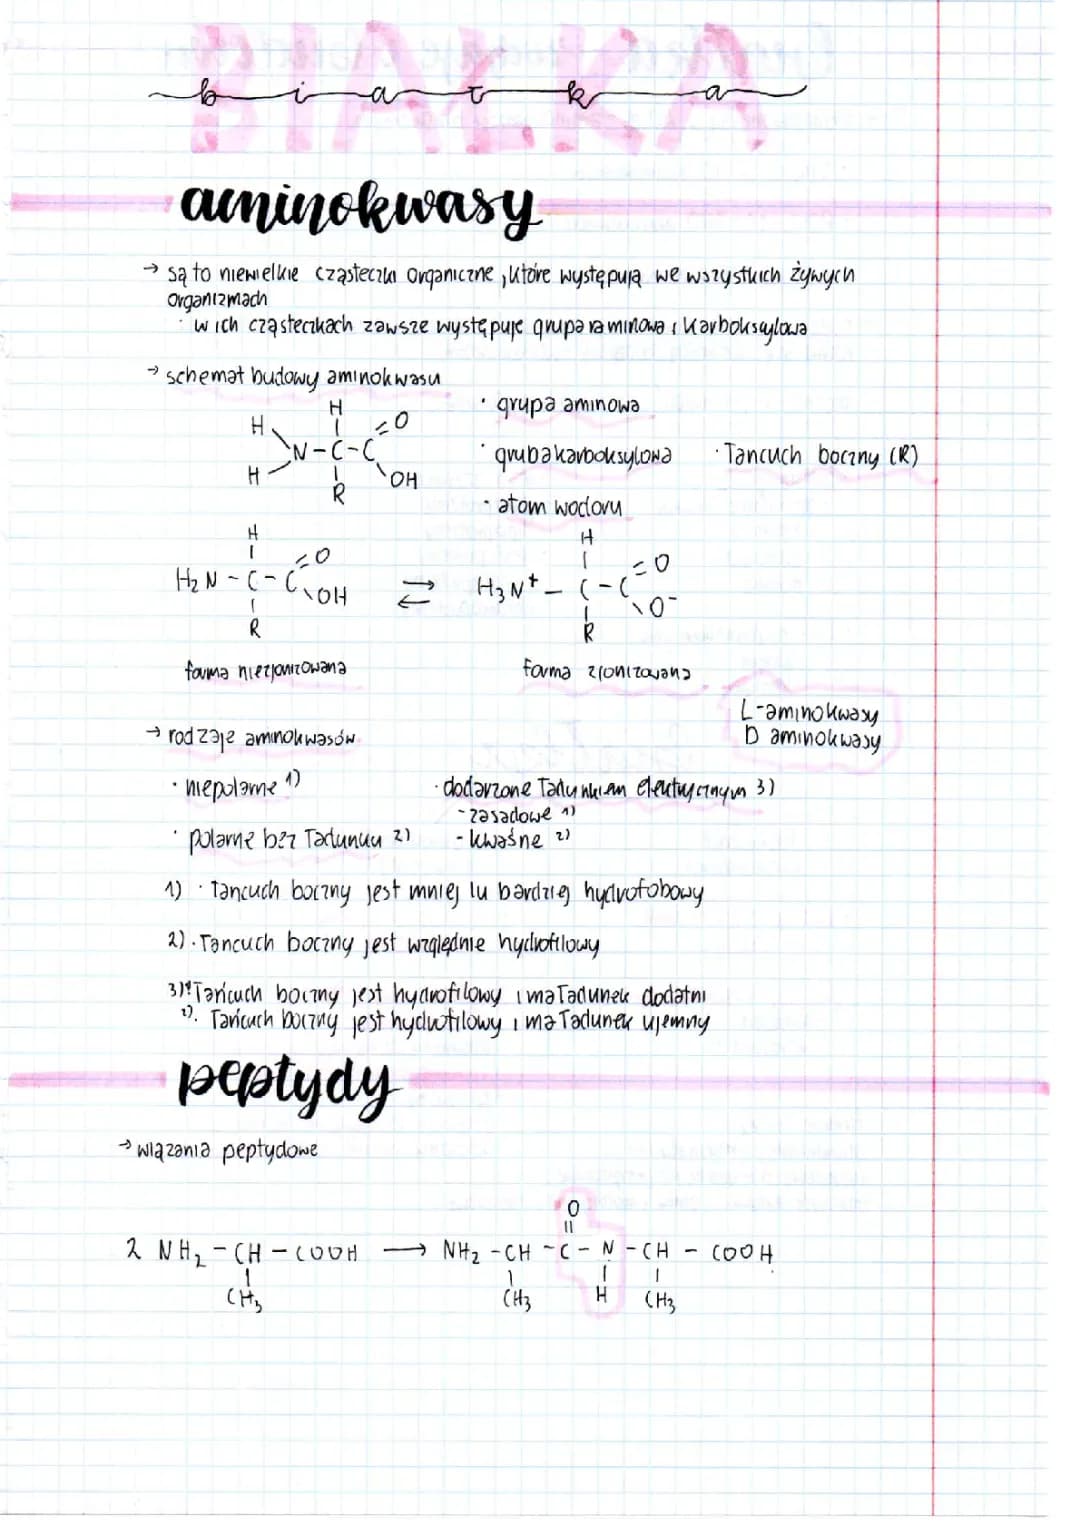 BIAŁKA
białka
aminokwasy
→ są to niewielkie cząsteczki organiczne, które występują we wszystkich żywych
organizmach
· w ich cząsteczkach zawsze występuje grupa aminowa i karboksylowa
→ schemat budowy aminokwasu
· grupa aminowa
· gruba karboksylowa · Łancuch boczny (R)
· atom wodoru
H
H O
N-C-C
H OH
R
H
O
H₂N - C - C
OH
R
⇄
H
O
H₃N⁺ - C - C
O⁻
R
forma niezjonizowana forma zjonizowana
L-aminokwasy
D aminokwasy
→ rodzaje aminokwasów
· niepolarne 1) · dodarzone ładunkiem elektrycznym 3)
- zasadowe 1)
· polarne bez ładunku 2) - kwaśne 2)
1) · Łancuch boczny jest mniej lu bardziej hydrofobowy
2) · Łancuch boczny jest względnie hydrofilowy
3) 1) Łańcuch boczny jest hydrofilowy i ma ładunek dodatni
2). Łańcuch boczny jest hydrofilowy i ma ładunek ujemny
peptydy
→ wiązania peptydowe
O
||
2 NH₂ - CH - COOH → NH₂ - CH - C - N - CH - COOH
CH₃ CH₃ H CH₃